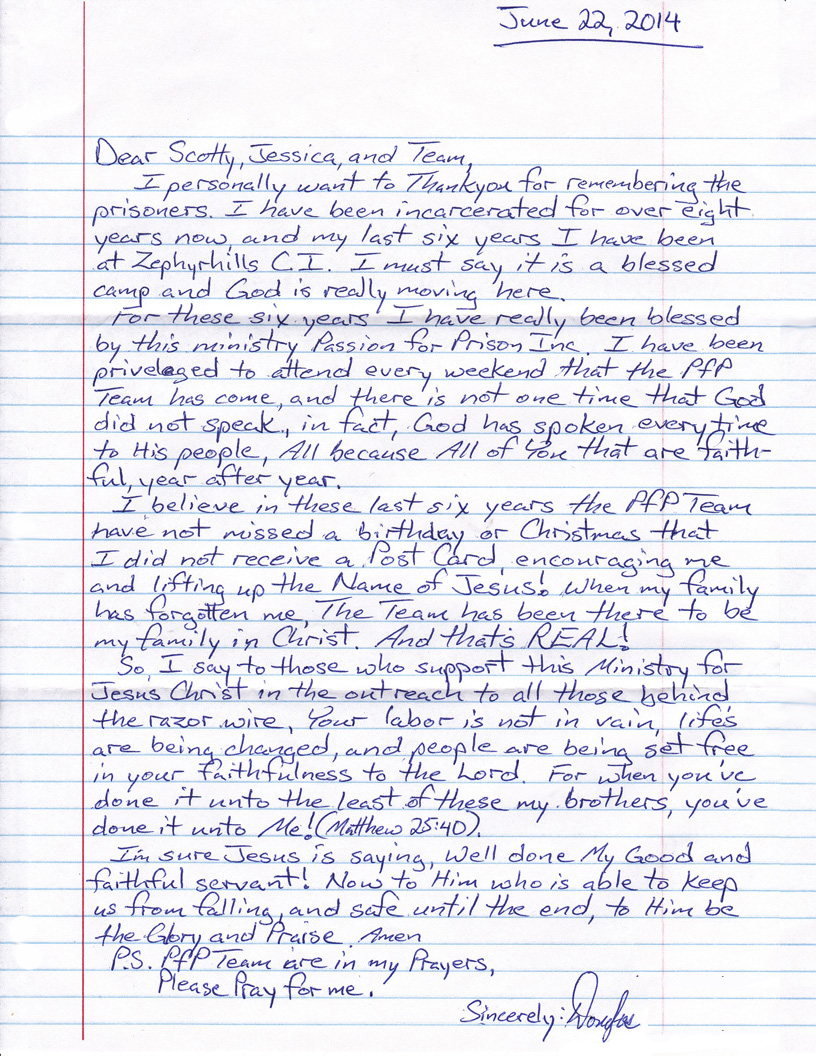 June 22, 2014
Dear Scotty, Jessica, and Team,
I personally want to Thankyou for remembering the
prisoners. I have been incarcerated for over eight
years now, and my last six years I have been
at Zephyrhills C.I. I must say it is a blessed
camp and God is really moving here.
For these six years I have really been blessed
by this ministry Passion for Prison Inc. I have been
priveleged to attend every weekend that the PfP
Team has come, and there is not one time that God
did not speak, in fact, God has spoken every time
to His people, All because All of You that are faith-
ful, year after year.
I believe in these last six years the PfP Team
have not missed a birthday or Christmas that
I did not receive a Post Card, encouraging me
and lifting up the Name of Jesus! When my family
has forgotten me, The Team has been there to be
my family in Christ. And that's REAL!
So, I say to those who support this Ministry for
Jesus Christ in the outreach to all those behind
the razor wire, Your labor is not in vain, life's
are being changed, and people are being set free
in your faithfulness to the Lord. For when you've
done it unto the least of these my brothers, you've
done it unto Me! (Matthew 25:40).
I'm sure Jesus is saying, Well done My Good and
faithful servant! Now to Him who is able to keep
us from falling, and safe until the end, to Him be
the Glory and Praise. Amen
P.S. PfP Team are in my Prayers,
Please Pray for me.
Sincerely: Douglas